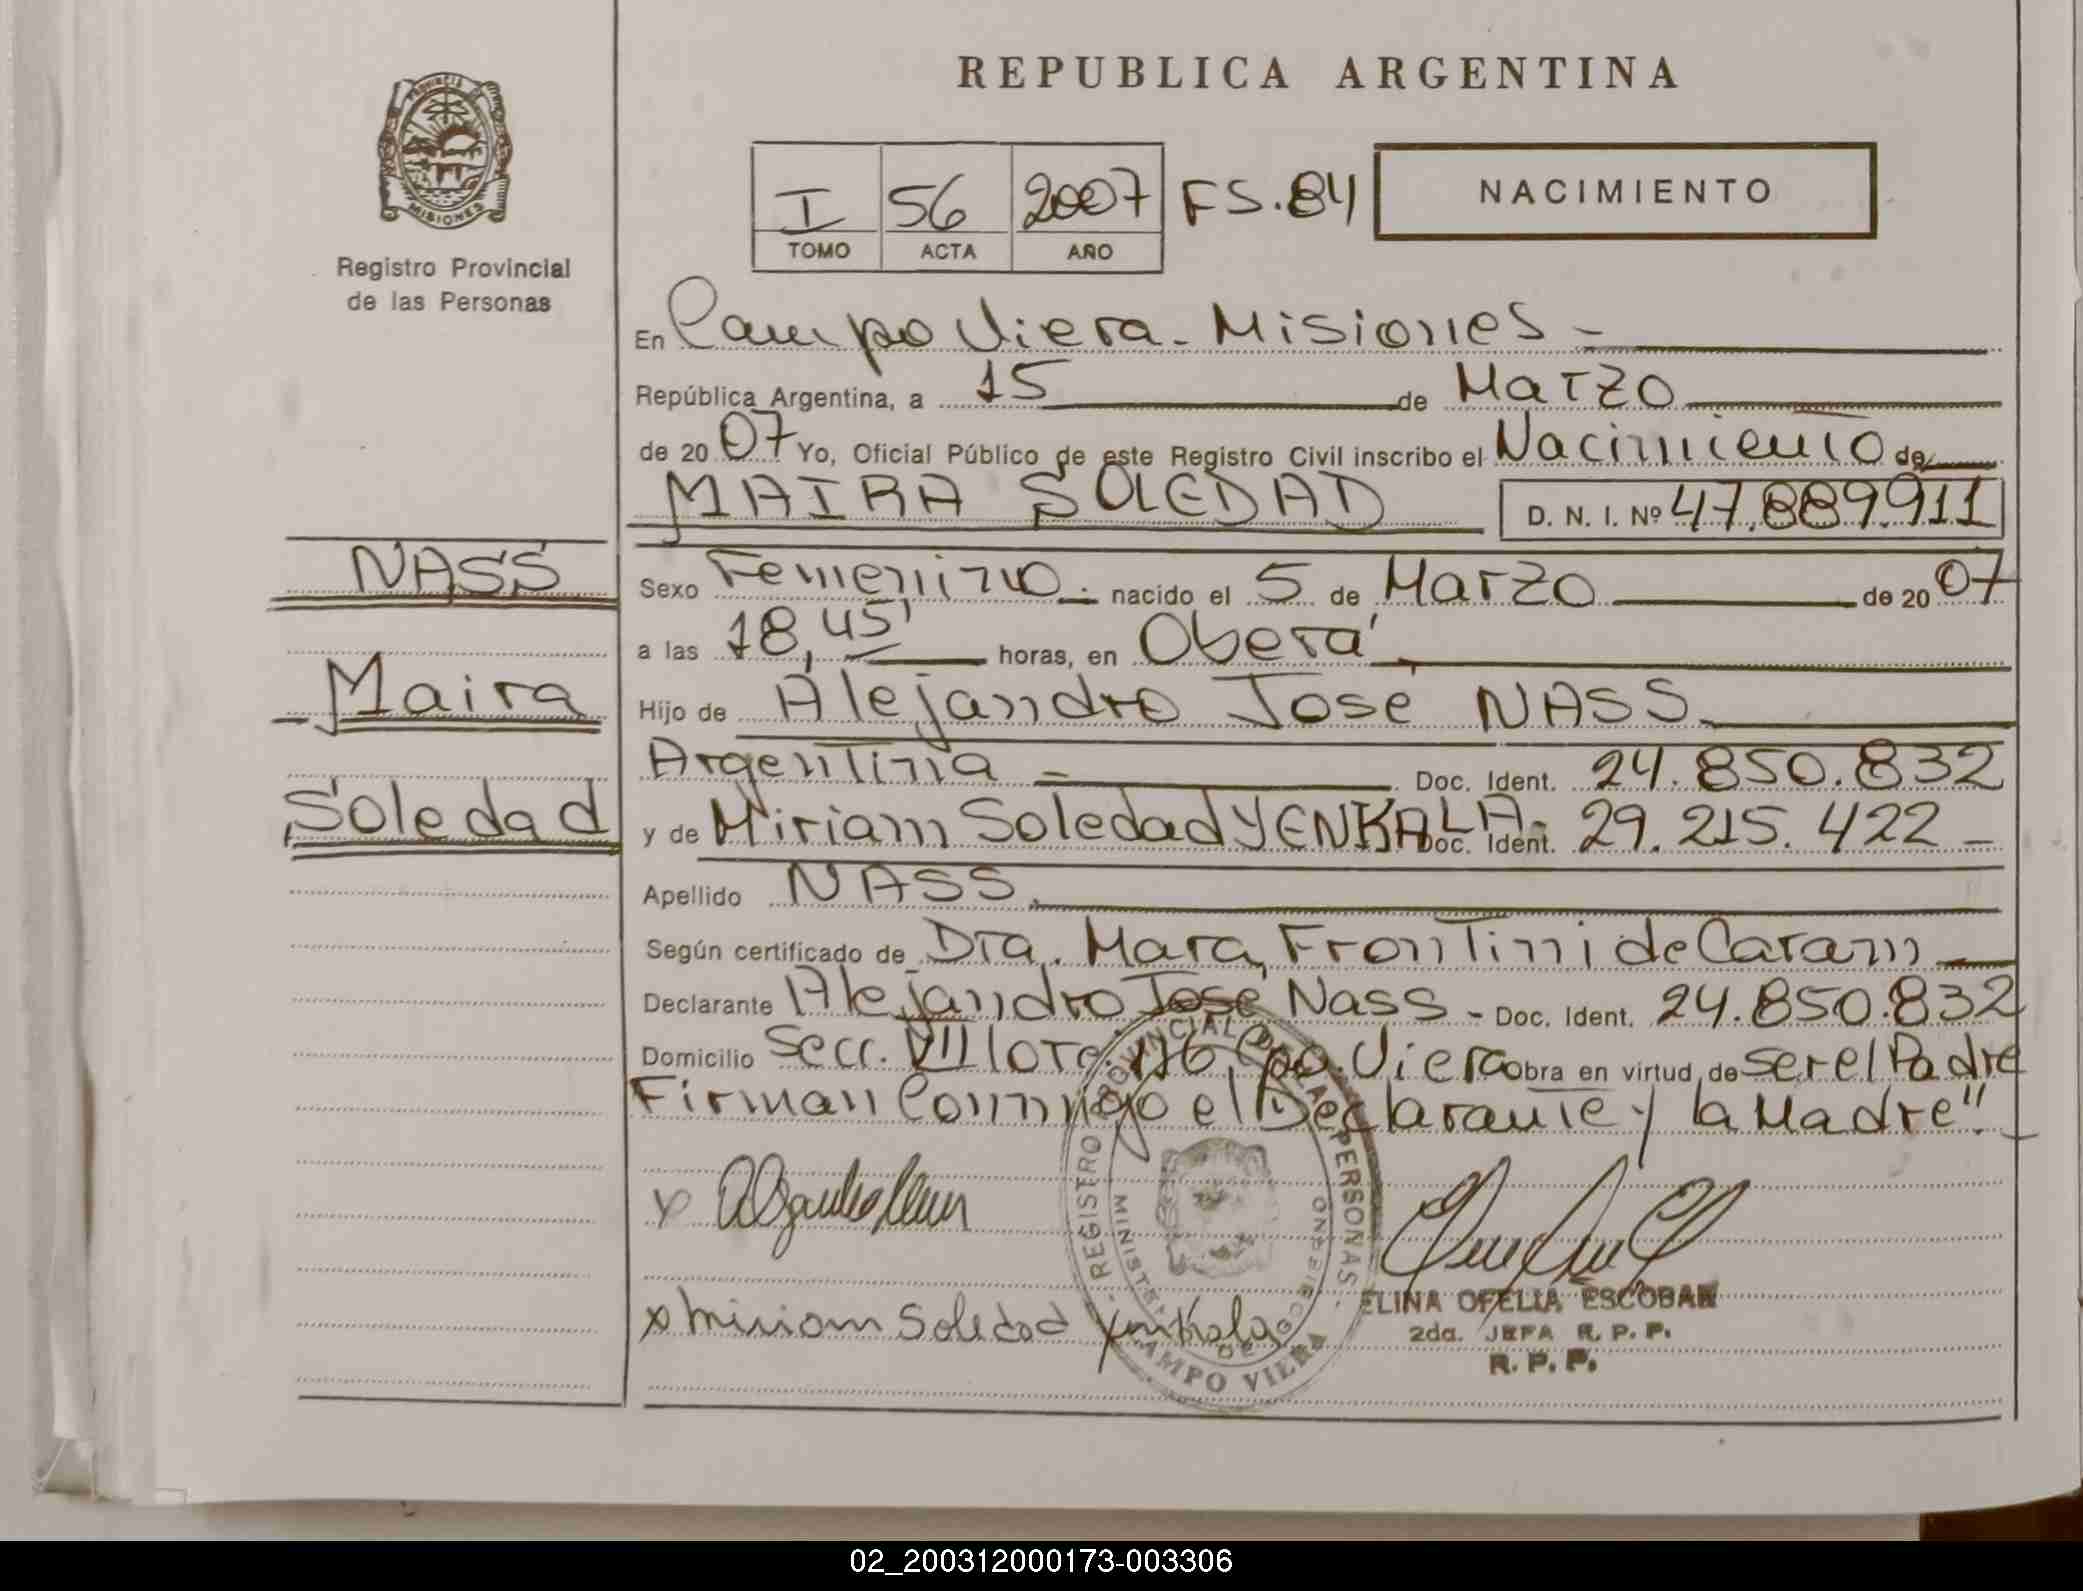 REPUBLICA ARGENTINA
PROVINCIA DE
MISIONES
Registro Provincial
de las Personas
I 56 2007 FS. 84
TOMO ACTA AÑO
NACIMIENTO
En Campo Viera - Misiones -
República Argentina, a 15 de Marzo
de 2007 Yo, Oficial Público de este Registro Civil inscribo el Nacimiento de
MAIRA SOLEDAD D. N. I. Nº 47.889.911
NASS
Maira
Soledad
Sexo Femenino. nacido el 5 de Marzo de 2007
a las 18,45' horas, en Oberá
Hijo de Alejandro Jose NASS
Argentina - Doc. Ident. 24.850.832
y de Miriam Soledad YENKALA - Doc. Ident. 29.215.422 -
Apellido NASS
Según certificado de Dra. Mara Frontini de Caram
Declarante Alejandro José Nass - Doc. Ident. 24.850.832
Domicilio Secc. VIII Lote 116 Cpo. Viera obra en virtud de ser el Padre
Firman Conmigo el Declarante y la Madre".
x
x Miriam Soledad Yenkala
REGISTRO PROVINCIAL DE LAS PERSONAS
MINISTERIO DE GOBIERNO
CAMPO VIERA
ELINA OFELIA ESCOBAR
2da. JEFA R. P. P.
R. P. P.
02_200312000173-003306